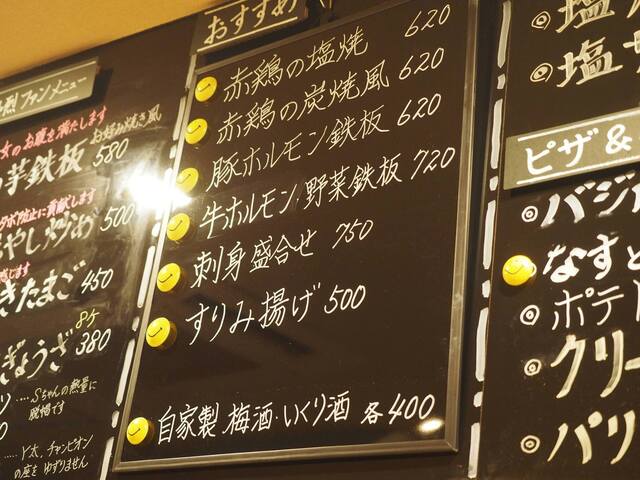 烈ファンメニュー
女のお腹を満たします
芋鉄板 お好み焼き風 580
貢献します
やし炒め 500
きたまご 450
ぎょうざ 8ヶ 380
....Sちゃんの熱量に
脱帽です
....Y太、チャンピオン
の座をゆずりません
おすすめ
赤鶏の塩焼 620
赤鶏の炭焼風 620
豚ホルモン鉄板 620
牛ホルモン・野菜鉄板 720
刺身盛合せ 750
すりみ揚げ 500
自家製 梅酒・いくり酒 各400
◎塩
◎塩
ピザ&
◎バジ
なすと
◎ポテト
◎クリー
◎パリ